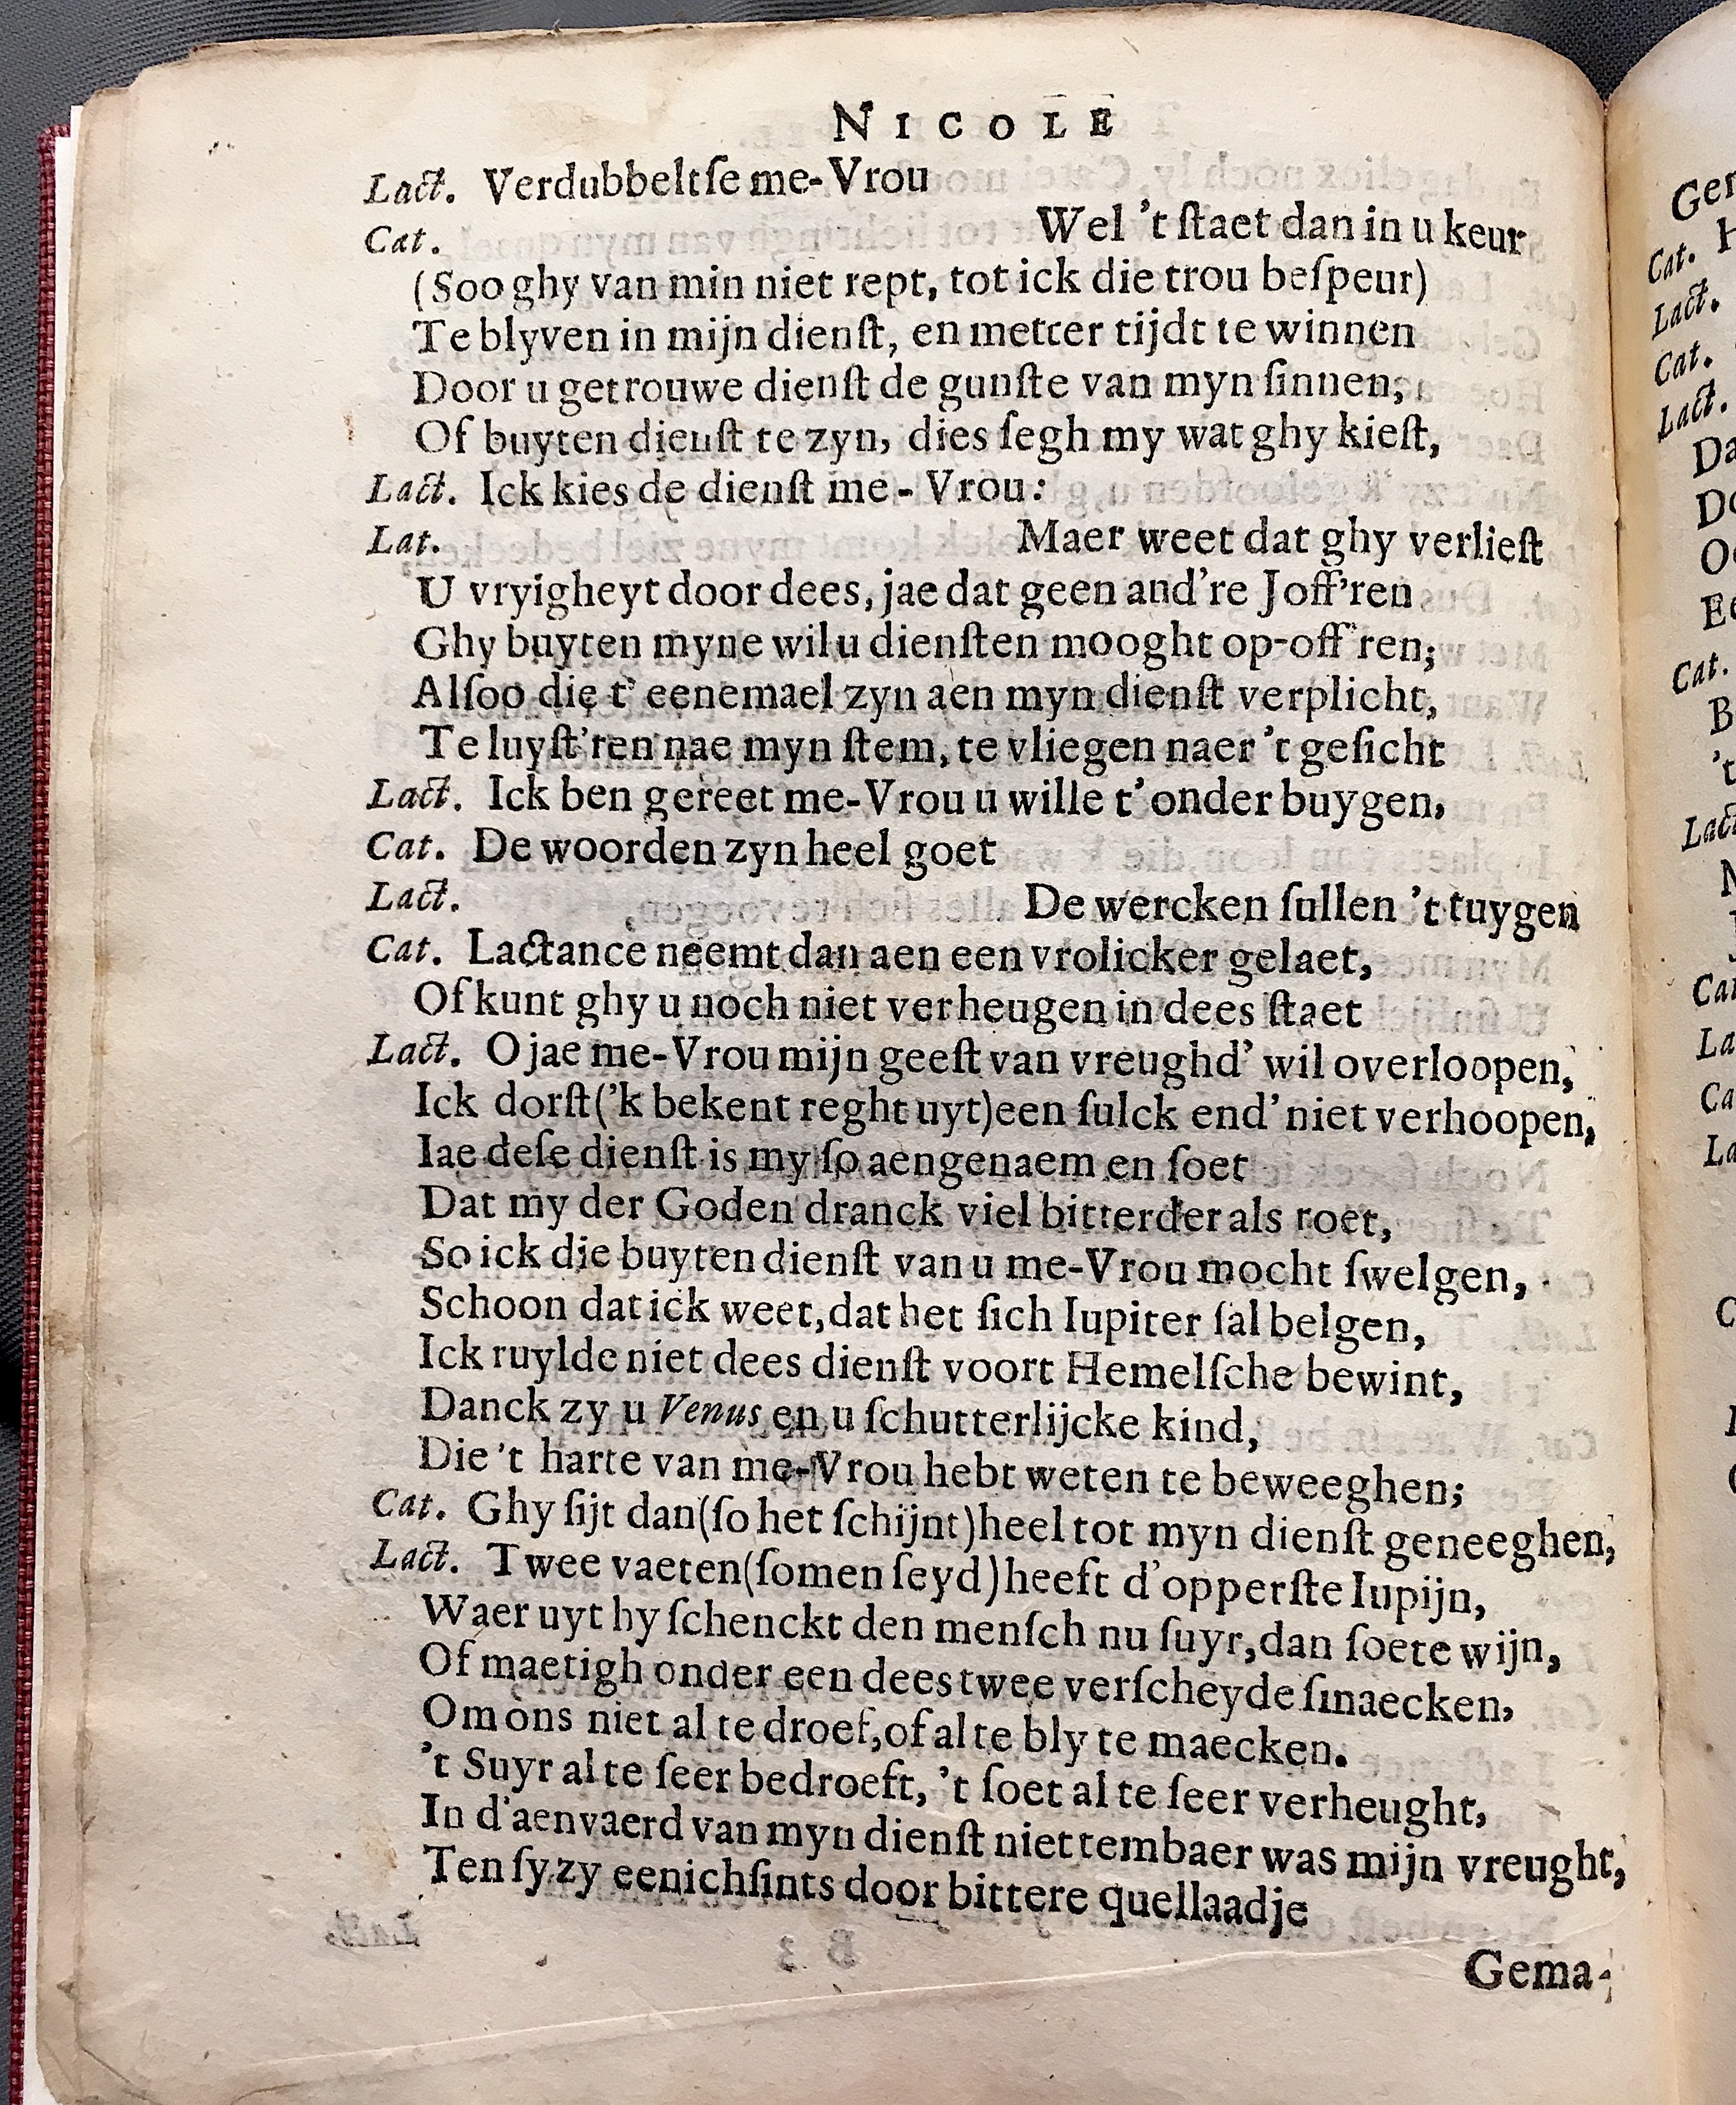 NICOLE
Lact. Verdubbeltſe me-Vrou
Cat. Wel 't ſtaet dan in u keur
(Soo ghy van min niet rept, tot ick die trou beſpeur)
Te blyven in mijn dienſt, en metter tijdt te winnen
Door u getrouwe dienſt de gunſte van myn ſinnen;
Of buyten dienſt te zyn, dies ſegh my wat ghy kieſt,
Lact. Ick kies de dienſt me-Vrou:
Lat. Maer weet dat ghy verlieſt
U vryigheyt door dees, jae dat geen and're Joff'ren
Ghy buyten myne wil u dienſten mooght op-off'ren;
Alſoo die t' eenemael zyn aen myn dienſt verplicht,
Te luyſt'ren nae myn ſtem, te vliegen naer 't geſicht
Lact. Ick ben gereet me-Vrou u wille t'onder buygen,
Cat. De woorden zyn heel goet
Lact. De wercken ſullen 't tuygen
Cat. Lactance neemt dan aen een vrolicker gelaet,
Of kunt ghy u noch niet verheugen in dees ſtaet
Lact. O jae me-Vrou mijn geeſt van vreughd' wil overloopen,
Ick dorſt ('k bekent reght uyt) een ſulck end' niet verhoopen,
Iae deſe dienſt is my ſo aengenaem en ſoet
Dat my der Goden dranck viel bitterder als roet,
So ick die buyten dienſt van u me-Vrou mocht ſwelgen,
Schoon dat ick weet, dat het ſich Iupiter ſal belgen,
Ick ruylde niet dees dienſt voort Hemelſche bewint,
Danck zy u Venus en u ſchutterlijcke kind,
Die 't harte van me-Vrou hebt weten te beweeghen;
Cat. Ghy ſijt dan (ſo het ſchijnt) heel tot myn dienſt geneeghen,
Lact. Twee vaeten (ſomen ſeyd) heeft d'opperſte Iupijn,
Waer uyt hy ſchenckt den menſch nu ſuyr, dan ſoete wijn,
Of maetigh onder een dees twee verſcheyde ſmaecken,
Om ons niet al te droef, of al te bly te maecken.
't Suyr al te ſeer bedroeft, 't ſoet al te ſeer verheught,
In d'aenvaerd van myn dienſt niet tembaer was mijn vreught,
Ten ſy zy eenichſints door bittere quellaadje
Gema-
Ger
Cat. H
Lact.
Cat.
Lact.
Da
Do
Oo
Ee
Cat.
B
't
Lact
N
J
Cat
La
Ca
La